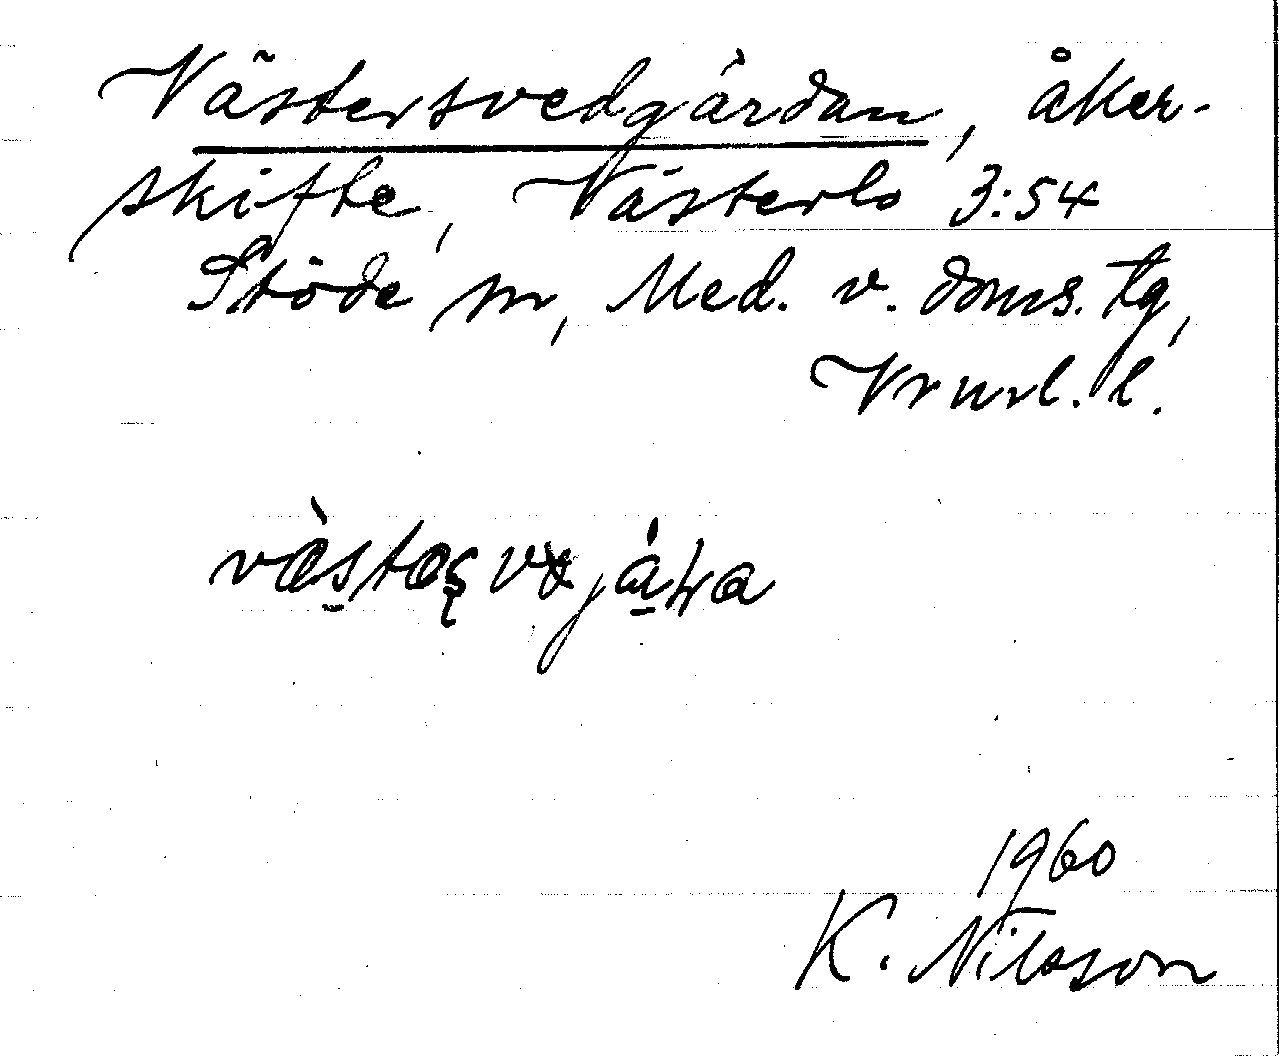 Västersvedgärdan, åker-
skifte, Västerlo 3:54
Stöde sn, Med. v. doms. tg,
Vrnrl. l.
1960
K. Nilsson